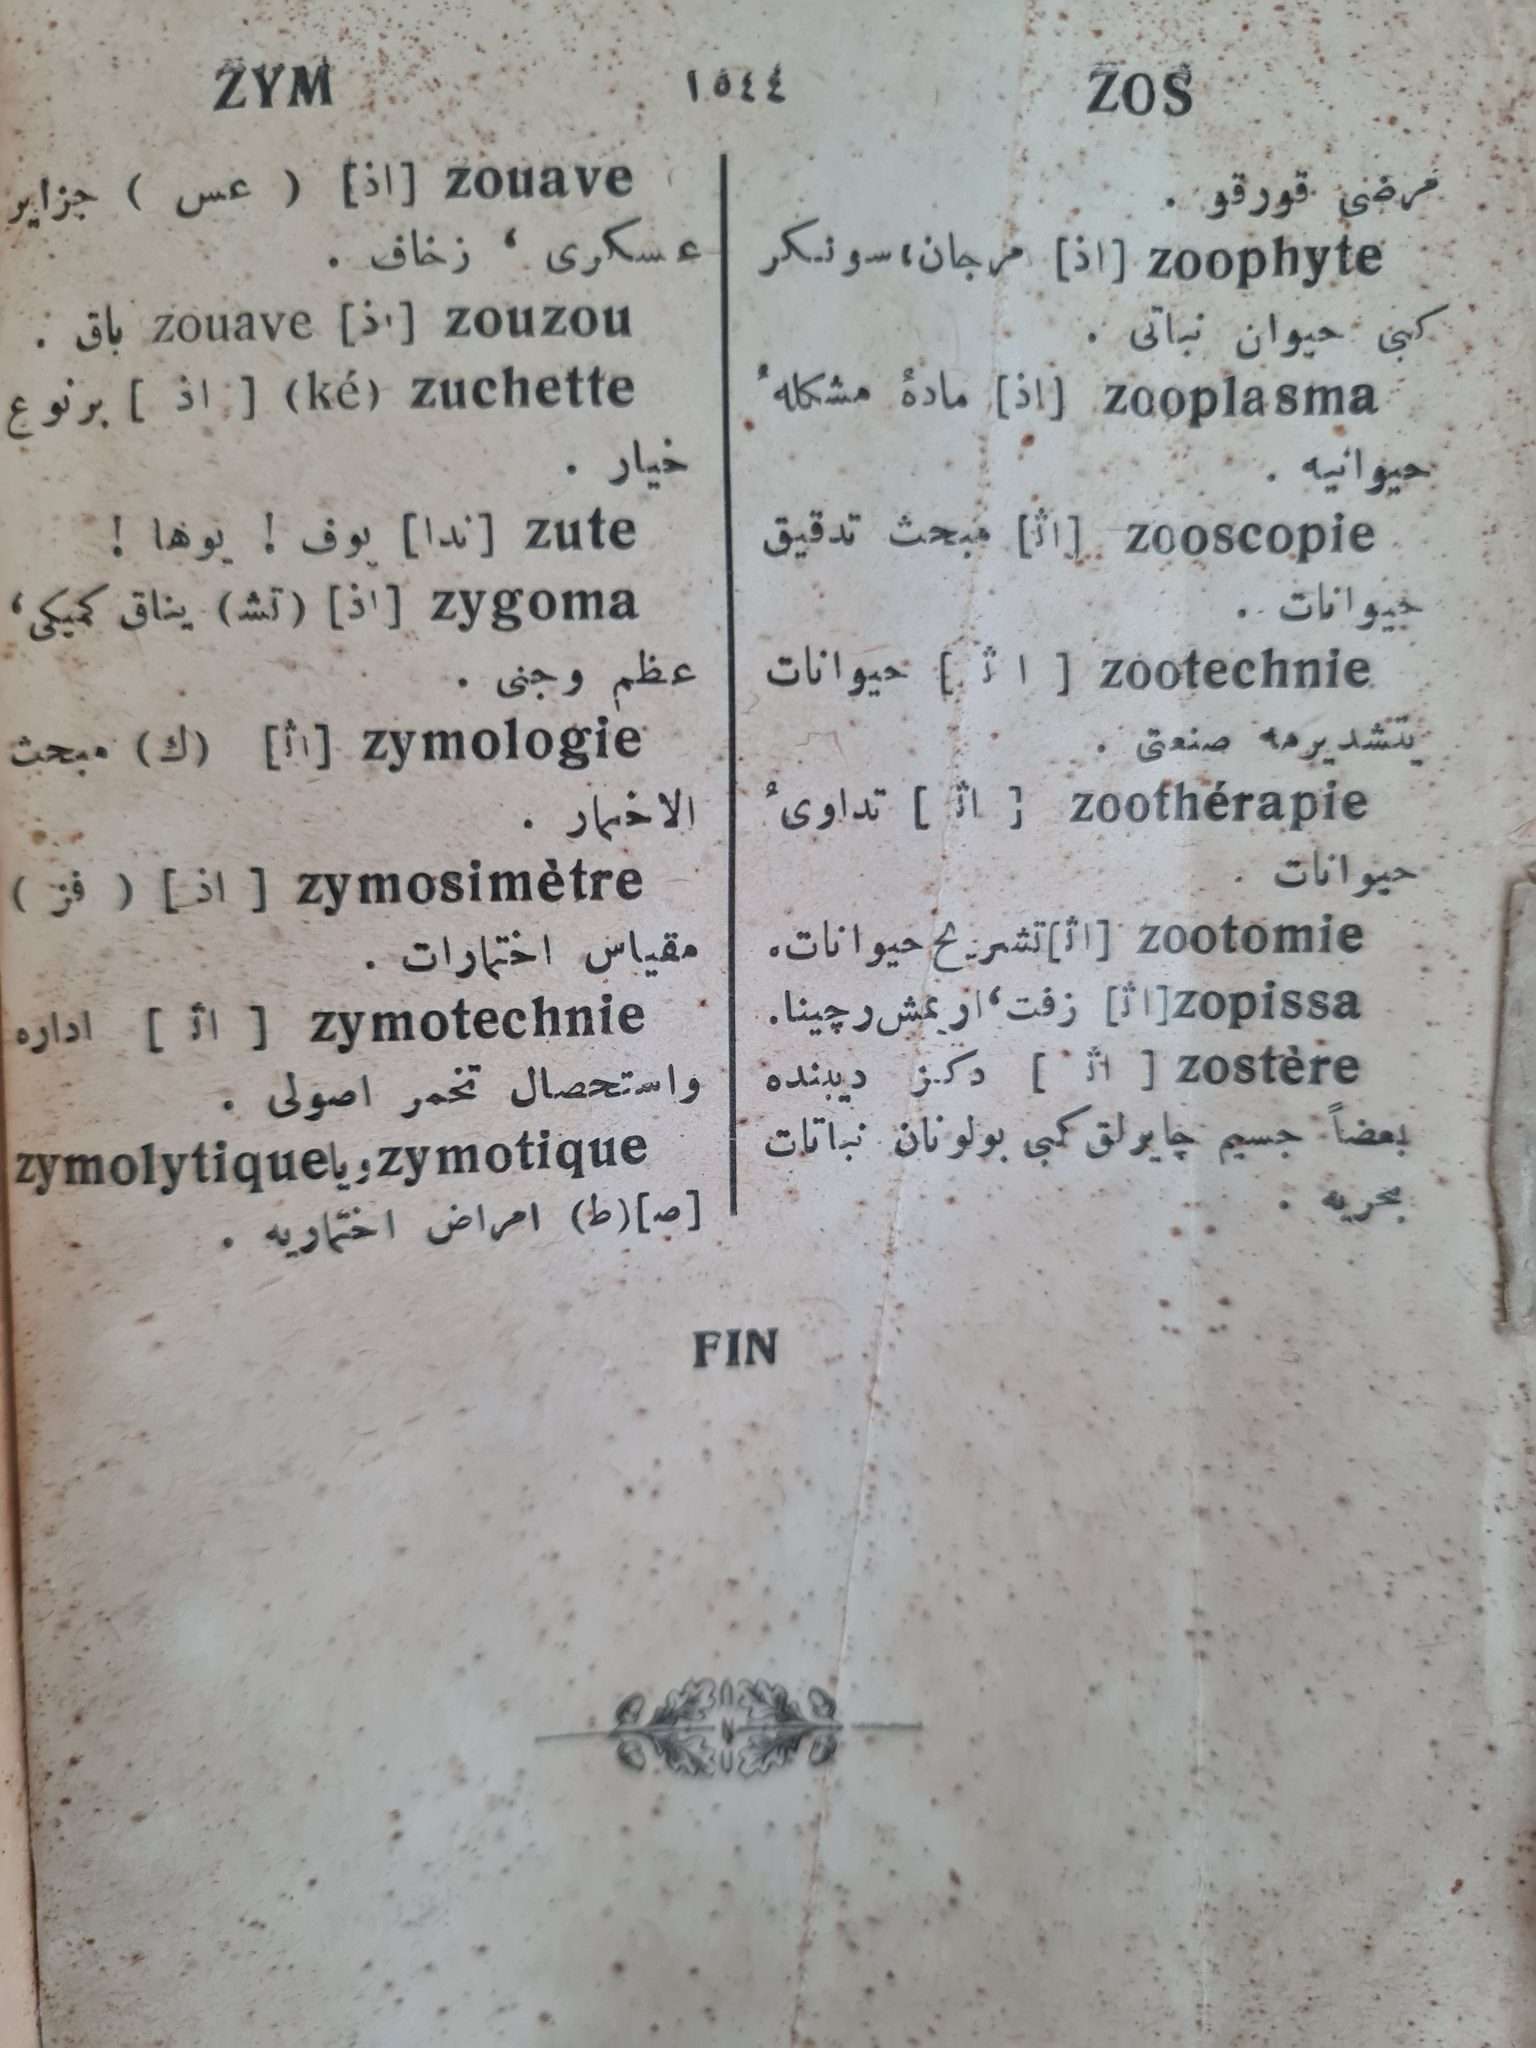 ZOS ١٥٤٤ ZYM
مرضى قورقو .
zoophyte [اذ] مرجان، سونكر
كبى حيوان نباتى .
zooplasma [اذ] مادۀ مشكله ٔ
حيوانيه .
zooscopie [اﺛ] مبحث تدقيق
حيوانات .
zootechnie [ اﺛ ] حيوانات
يتشديرمه صنعتى .
zoothérapie [ اﺛ ] تداوى ٔ
حيوانات .
zootomie [اﺛ] تشريح حيوانات.
zopissa [اﺛ] زفت، اريمش رچينا.
zostère [ اﺛ ] دكز ديبنده
بعضاً جسيم چايرلق كبى بولونان نباتات
بحريه .
zouave [اذ] ( عس ) جزاير
عسكرى ، زخاف .
zouzou [اذ] zouave باق .
zuchette (ké) [ اذ ] برنوع
خيار .
zute [ندا] يوف ! يوها !
zygoma [اذ] (تشـ) يناق كميكى،
عظم وجنى .
zymologie [اﺛ] (ك) مبحث
الاختمار .
zymosimètre [ اذ ] ( فز )
مقياس اختمارات .
zymotechnie [ اﺛ ] اداره
واستحصال تخمر اصولى .
zymotique ويا zymolytique
[صـ] (ط) امراض اختماريه .
FIN